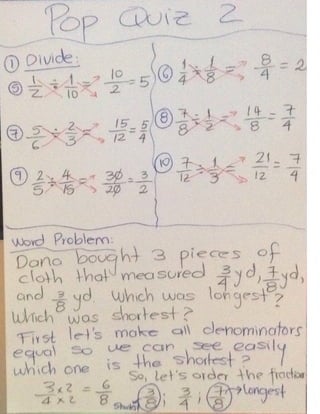 Pop Quiz 2
① Divide:
⑤ 1/2 ÷ 1/10 = 10/2 = 5
⑥ 1/4 ÷ 1/8 = 8/4 = 2
⑦ 5/6 ÷ 2/3 = 15/12 = 5/4
⑧ 7/8 ÷ 1/2 = 14/8 = 7/4
⑨ 2/5 ÷ 4/15 = 30/20 = 3/2
⑩ 7/12 ÷ 1/3 = 21/12 = 7/4
Word Problem:
Dana bought 3 pieces of
cloth that measured 3/4 yd, 7/8 yd,
and 3/8 yd. Which was longest?
Which was shortest?
First let's make all denominators
equal so we can see easily
which one is the shortest?
So, let's order the fraction
3×2/4×2 = 6/8
3/8; 3/4; 7/8 → longest